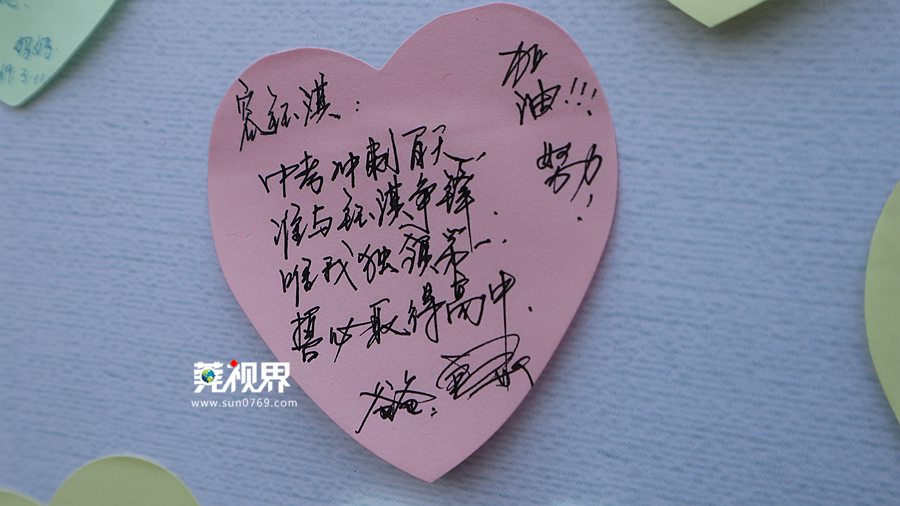 妈妈
19.3.11
容钰淇：
中考冲刺百天，
谁与钰淇争锋，
唯我独领第一，
誓必取得高中．
加油!!!
努力!
爸爸：
莞视界
www.sun0769.com